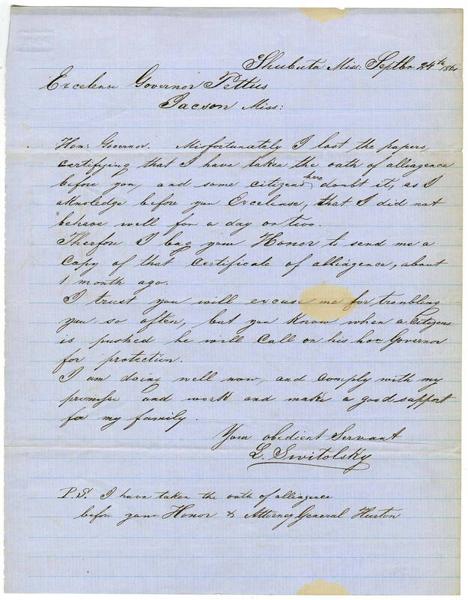 Shubuta Miss: Septbr. 24th 1861
Excelense Governor Pettus
Jacson Miss:
Hon: Governor. Misfortunately I lost the papers,
certifying that I have taken the oath of alliagence
before you, and some citizens here doubt it, as I
aknoledge before you Excelense, that I did not
behave well for a day or two.
Therfor I bag your Honor to send me a
copy of that certificate of alliagence, about
1 month ago.
I trust you will excuse me for troubling
you so often, but you know when a Citizens
is pushed he will call on his hov Governor
for protection.
I am doing well now, and comply with my
promise and work and make a good support
for my family.
Your obedient Servant
L. Switolsky
P.S. I have taken the oate of alliagence
before your Honor & Attorney General Huston